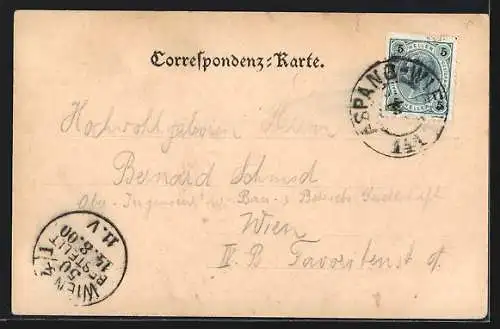 Correspondenz-Karte.
5 HELLER 5
ASPANG-WIEN
141
Hochwohlgeboren Herrn
Bernard Schmid
Ob. Ingenieur Bau Gesellschaft
Wien
IV. B Favoritenst
WIEN 4/1
50
BESTELLT
14.8.00
11.V